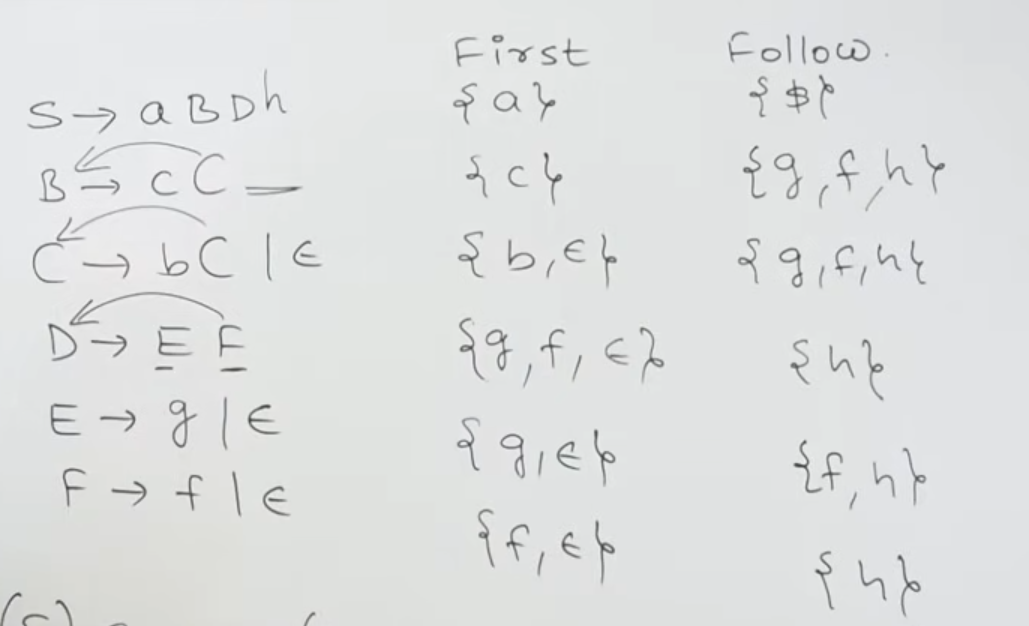 First Follow.
S → a B D h { a } { $ }
B → c C { c } { g , f , h }
C → b C | ∈ { b , ∈ } { g , f , h }
D → E F { g , f , ∈ } { h }
E → g | ∈ { g , ∈ } { f , h }
F → f | ∈ { f , ∈ } { h }